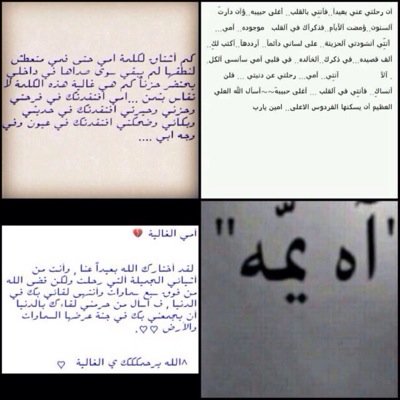 كم أشتاق لكلمة امي حتى فمي متعطش
لنطقها لم يبقى سوى صداها في داخلي
يحتضر حزناً كم هي غالية هذه الكلمة لا
تقاس بثمن ... امي افتقدتك في فرحتي
وحزني وحيرتي افتقدتك في حديثي
وبكائي وضحكتي افتقدتك في عيون وفي
وجه ابي ....
ان رحلتي عني بعيداً..فأنتي بالقلب.. أغلى حبيبه..وأن دارت
السنون..ومضت الأيام..فذكراك في ألقلب موجوده .. أمي...
أنتي أنشودتي الحزينة.. على لساني دائماً.. أرددها.. أكتب لك..
ألف قصيده.. في ذكرك الخالده.. في قلبي امي سأنسى ألكل.
إلا أنتي.. أمي... رحلتي عن دنيتي .. فلن
أنساك.. فأنتي في ألقلب ... أغلى حبيبة~~أسأل الله العلي
العظيم أن يسكنها الفردوس الاعلى.. امين يارب
أمي الغالية 💔
لقد أختارك الله بعيداً عنا , وأنت من
أشيائي الجميلة التي رحلت ولكن قضى الله
من فوق سبع سماوات وأنتهى لقائي بك في
الدنيا , ف أسأل من حرمني لقاءك بالدنيا
أن يجمعني بك في جنة عرضها السماوات
والأرض ♡♡.
^الله يرحمكككك ي الغالية ♡
"آه يمّه"